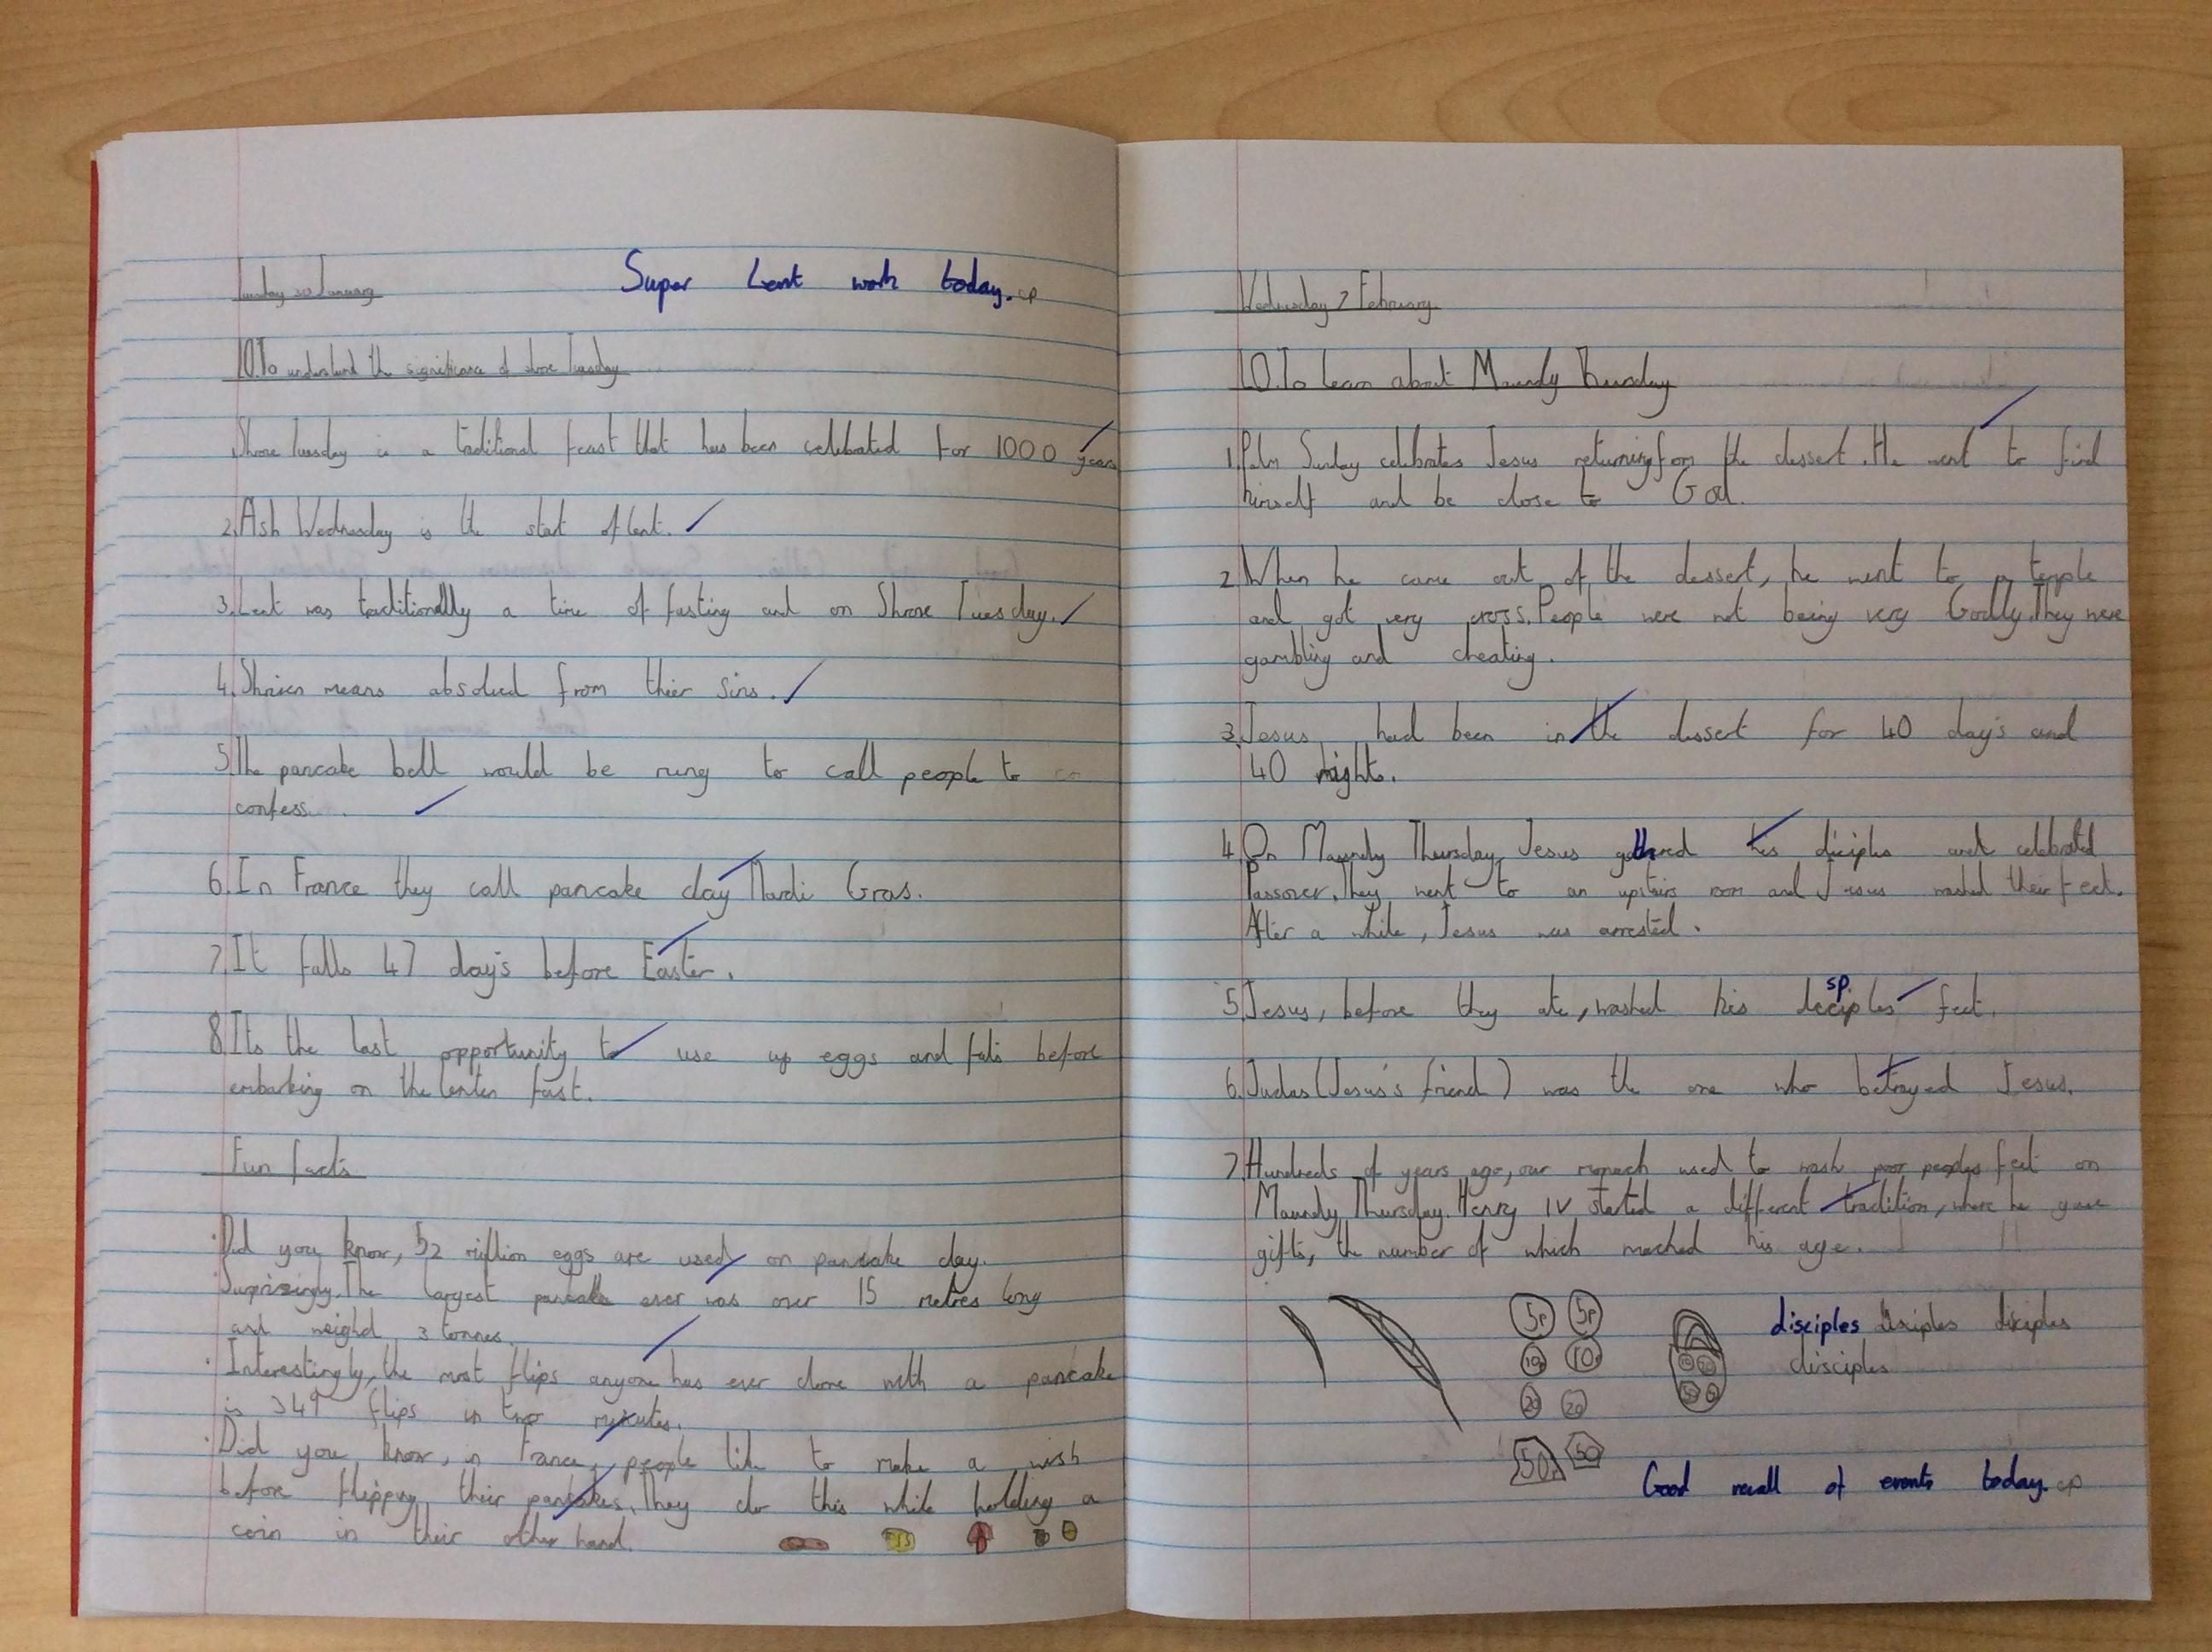 Tuesday 30 January
Super Lent work today. CP
LO.To understand the significance of shrove Tuesday
Shrove Tuesday is a traditional feast that has been celebrated for 1000 years
2.Ash Wednesday is the start of lent.
3.Lent was traditionally a time of fasting and on Shrove Tuesday.
4.Shriven means absolved from their sins.
5.The pancake bell would be rung to call people to co
confess.
6.In France they call pancake day Mardi Gras.
7.It falls 47 day's before Easter.
8.Its the last opportunity to use up eggs and fats before
embarking on the lenten fast.
Fun facts
.Did you know, 52 million eggs are used on pancake day.
.Surprisingly.The largest pancake ever was over 15 metres long
and weighd 3 tonnes.
.Interestingly, the most flips anyone has ever done with a pancake
is 349 flips in two minutes.
.Did you know, in France, people like to make a wish
before flipping their pancakes. They do this while holding a
coin in their other hand.
Wednesday 7 February
LO.To learn about Maundy Thursday
1.Palm Sunday celebrates Jesus returning from the dessert. He went to find
himself and be close to God.
2.When he came out of the dessert, he went to a temple
and got very cross. People were not being very Godly. They were
gambling and cheating.
3.Jesus had been in the dessert for 40 day's and
40 nights.
4.On Maundy Thursday, Jesus gathered his diciples and celebrated
Passover. They went to an upstairs room and Jesus washed their feet.
After a while, Jesus was arrested.
sp
5.Jesus, before they ate, washed his deciples feet.
6.Judas (Jesus's friend) was the one who betrayed Jesus.
7.Hundreds of years ago, our monach used to wash poor peoples feet on
Maundy Thursday. Henry IV started a different tradition, where he gave
gifts, the number of which mached his age.
5p 5p
disciples disciples disciples
10p 10p
disciples
20 20
50p 50
Good recall of events today. CP